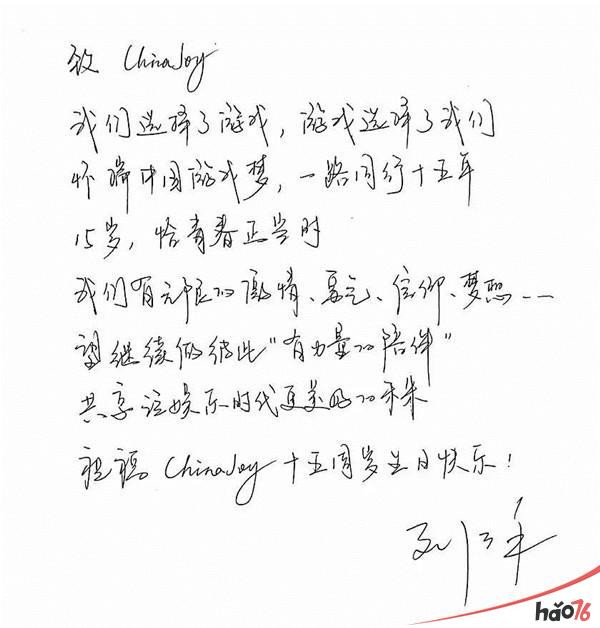 致 ChinaJoy
我们选择了游戏，游戏选择了我们
怀揣中国游戏梦，一路同行十五年
15岁，恰青春正当时
我们有无限的激情、勇气、信仰、梦想……
请继续做彼此“有力量的陪伴”
共享泛娱乐时代更美好的未来
祝福 ChinaJoy 十五周岁生日快乐！
hǎo76